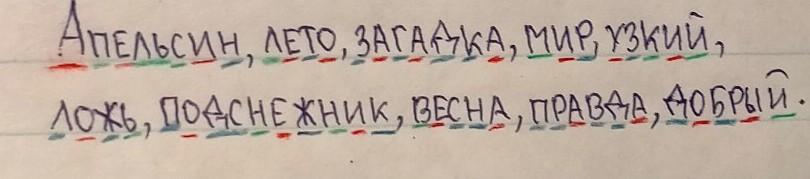 Апельсин, лето, загадка, мир, узкий,
ложь, подснежник, весна, правда, добрый.